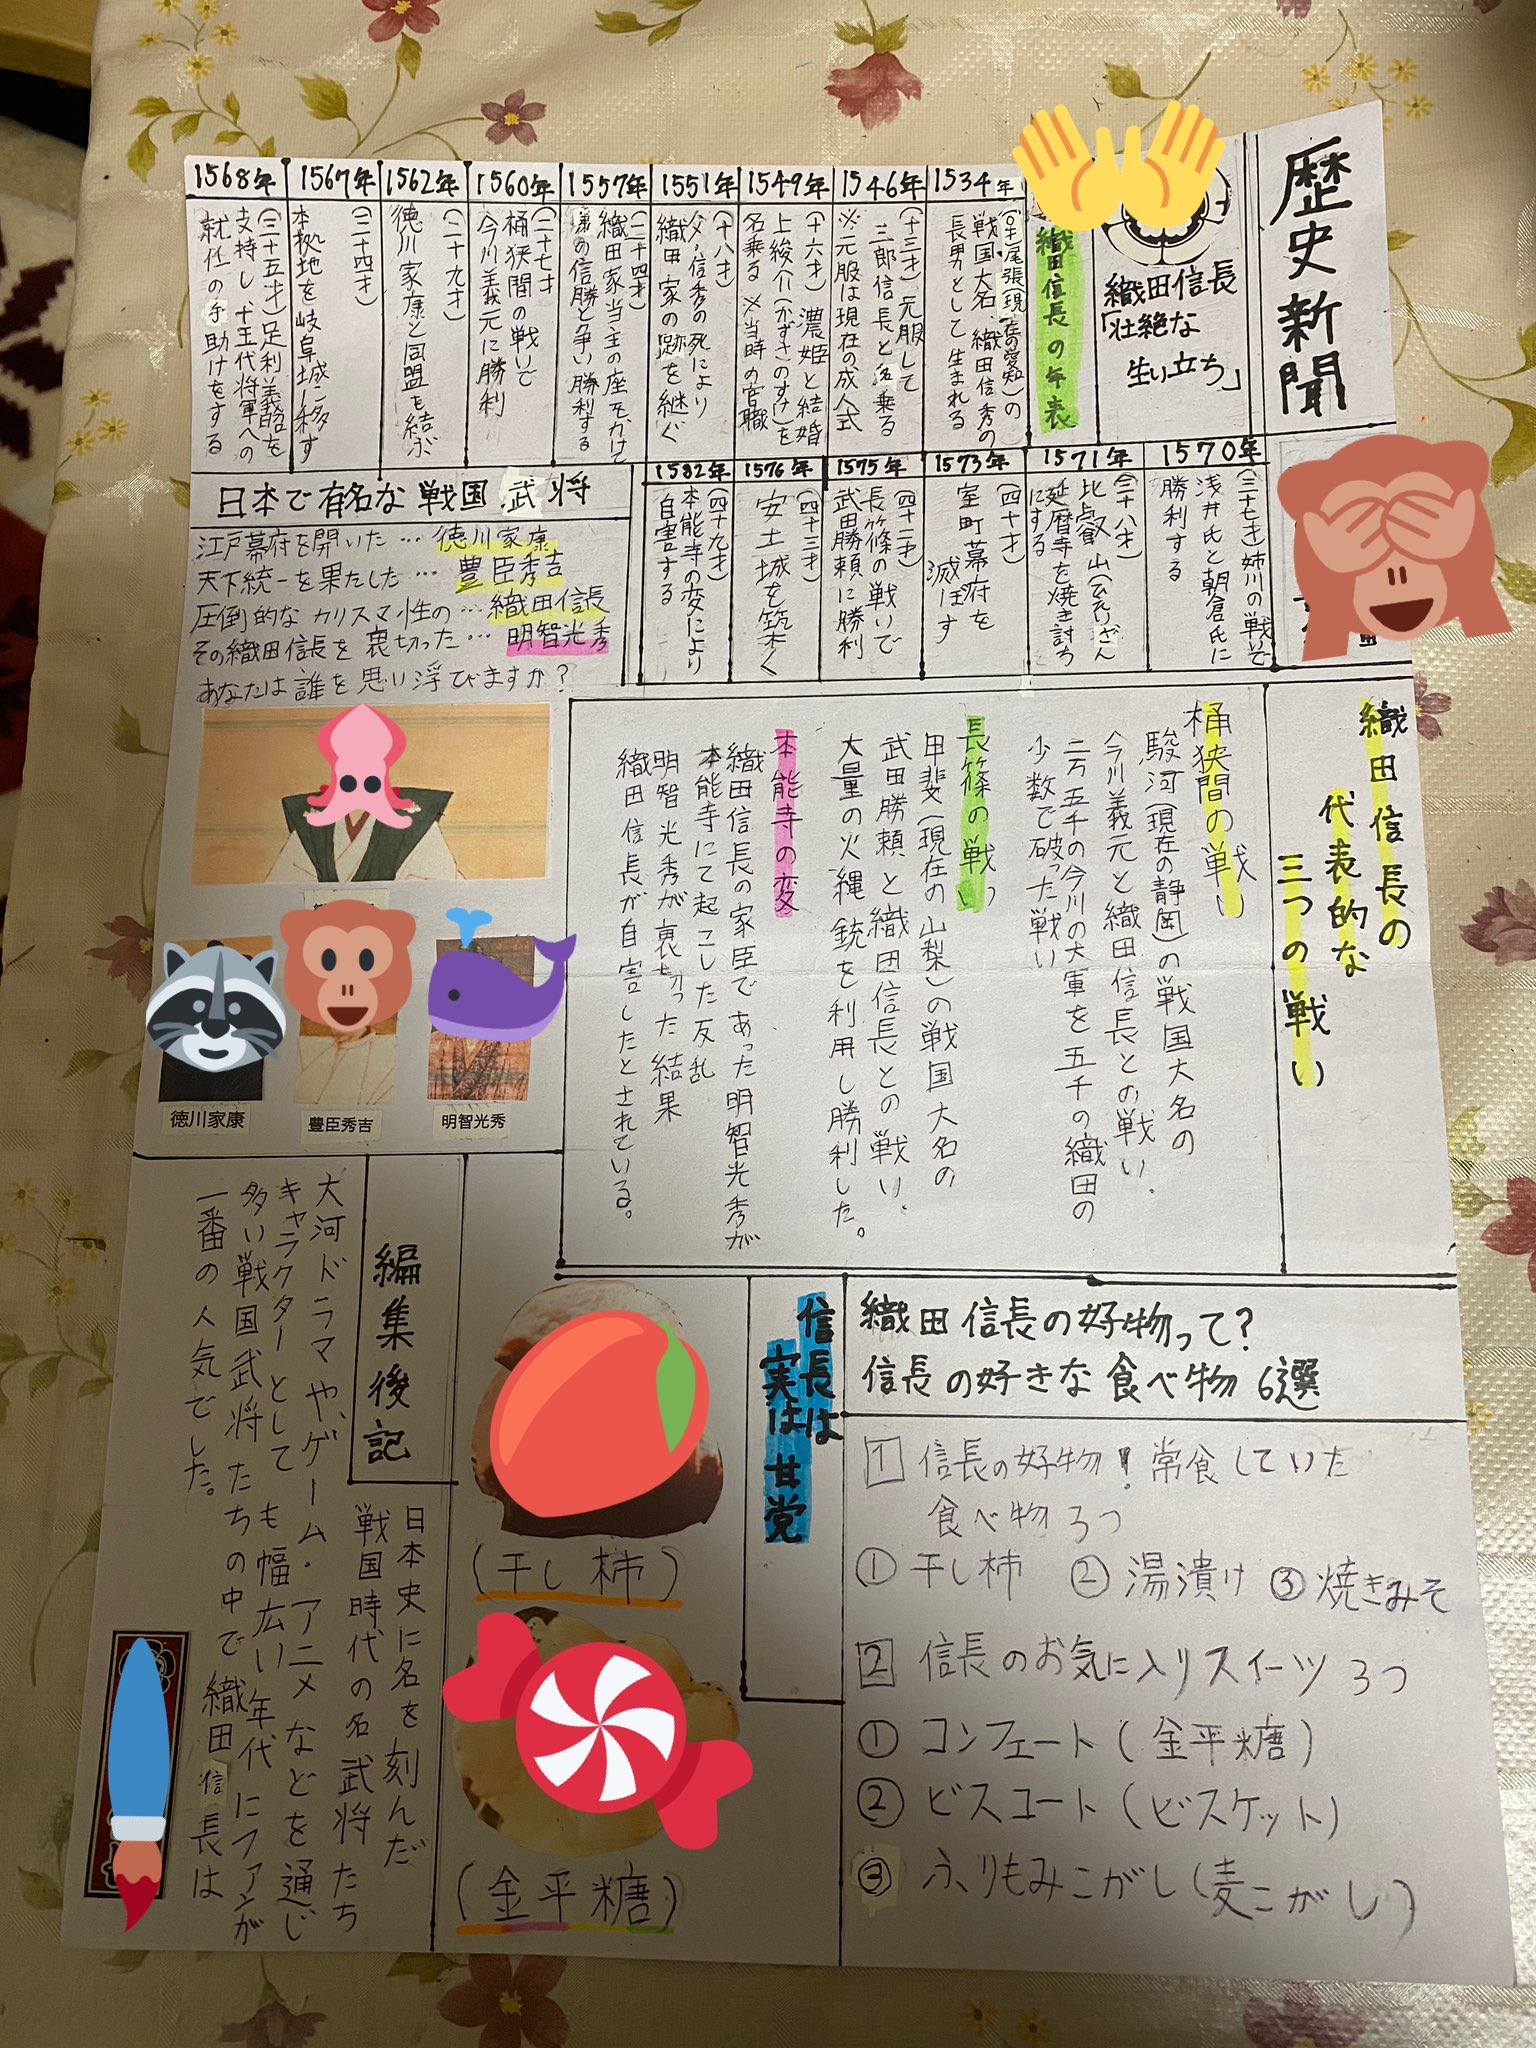 歴史新聞
織田信長
「壮絶な
生い立ち」
織田信長の年表
1534年
(0才)尾張(現在の愛知)の
戦国大名、織田信秀の
長男として生まれる
1546年
(十三才)元服して
三郎信長と名乗る
※元服は現在の成人式
1549年
(十六才)濃姫と結婚
上総介(かずさのすけ)を
名乗る ※当時の官職
1551年
(十八才)
父・信秀の死により
織田家の跡を継ぐ
1557年
(二十四才)
織田家当主の座をかけて
弟の信勝と争い勝利する
1560年
(二十七才)
桶狭間の戦いで
今川義元に勝利
1562年
(二十九才)
徳川家康と同盟を結ぶ
1567年
(三十四才)
本拠地を岐阜城に移す
1568年
(三十五才)足利義昭を
支持し、十五代将軍への
就任の手助けをする
1570年
(三十七才)姉川の戦いで
浅井氏と朝倉氏に
勝利する
1571年
(三十八才)
比叡山(ひえいざん)
延暦寺を焼き討ち
にする
1573年
(四十才)
室町幕府を
滅ぼす
1575年
(四十二才)
長篠の戦いで
武田勝頼に勝利
1576年
(四十三才)
安土城を築く
1582年
(四十九才)
本能寺の変により
自害する
日本で有名な戦国武将
江戸幕府を開いた…徳川家康
天下統一を果たした…豊臣秀吉
圧倒的なカリスマ性の…織田信長
その織田信長を裏切った…明智光秀
あなたは誰を思い浮びますか?
徳川家康
豊臣秀吉
明智光秀
織田信長の
代表的な
三つの戦い
桶狭間の戦い
駿河(現在の静岡)の戦国大名の
今川義元と織田信長との戦い.
二万五千の今川の大軍を五千の織田の
少数で破った戦い
長篠の戦い
甲斐(現在の山梨)の戦国大名の
武田勝頼と織田信長との戦い、
大量の火縄銃を利用し勝利した。
本能寺の変
織田信長の家臣であった明智光秀が
本能寺にて起こした反乱
明智光秀が裏切った結果
織田信長が自害したとされている。
織田信長の好物って?
信長の好きな食べ物6選
1 信長の好物!常食していた
食べ物3つ
①干し柿 ②湯漬け ③焼きみそ
2 信長のお気に入りスイーツ3つ
①コンフェート(金平糖)
②ビスコート(ビスケット)
③ふりもみこがし(麦こがし)
信長は
実は甘党
(干し柿)
(金平糖)
編集後記
日本史に名を刻んだ
戦国時代の名武将たち
大河ドラマや、ゲーム・アニメなどを通じ
キャラクターとしても幅広い年代にファンが
多い戦国武将たちの中で織田信長は
一番の人気でした。